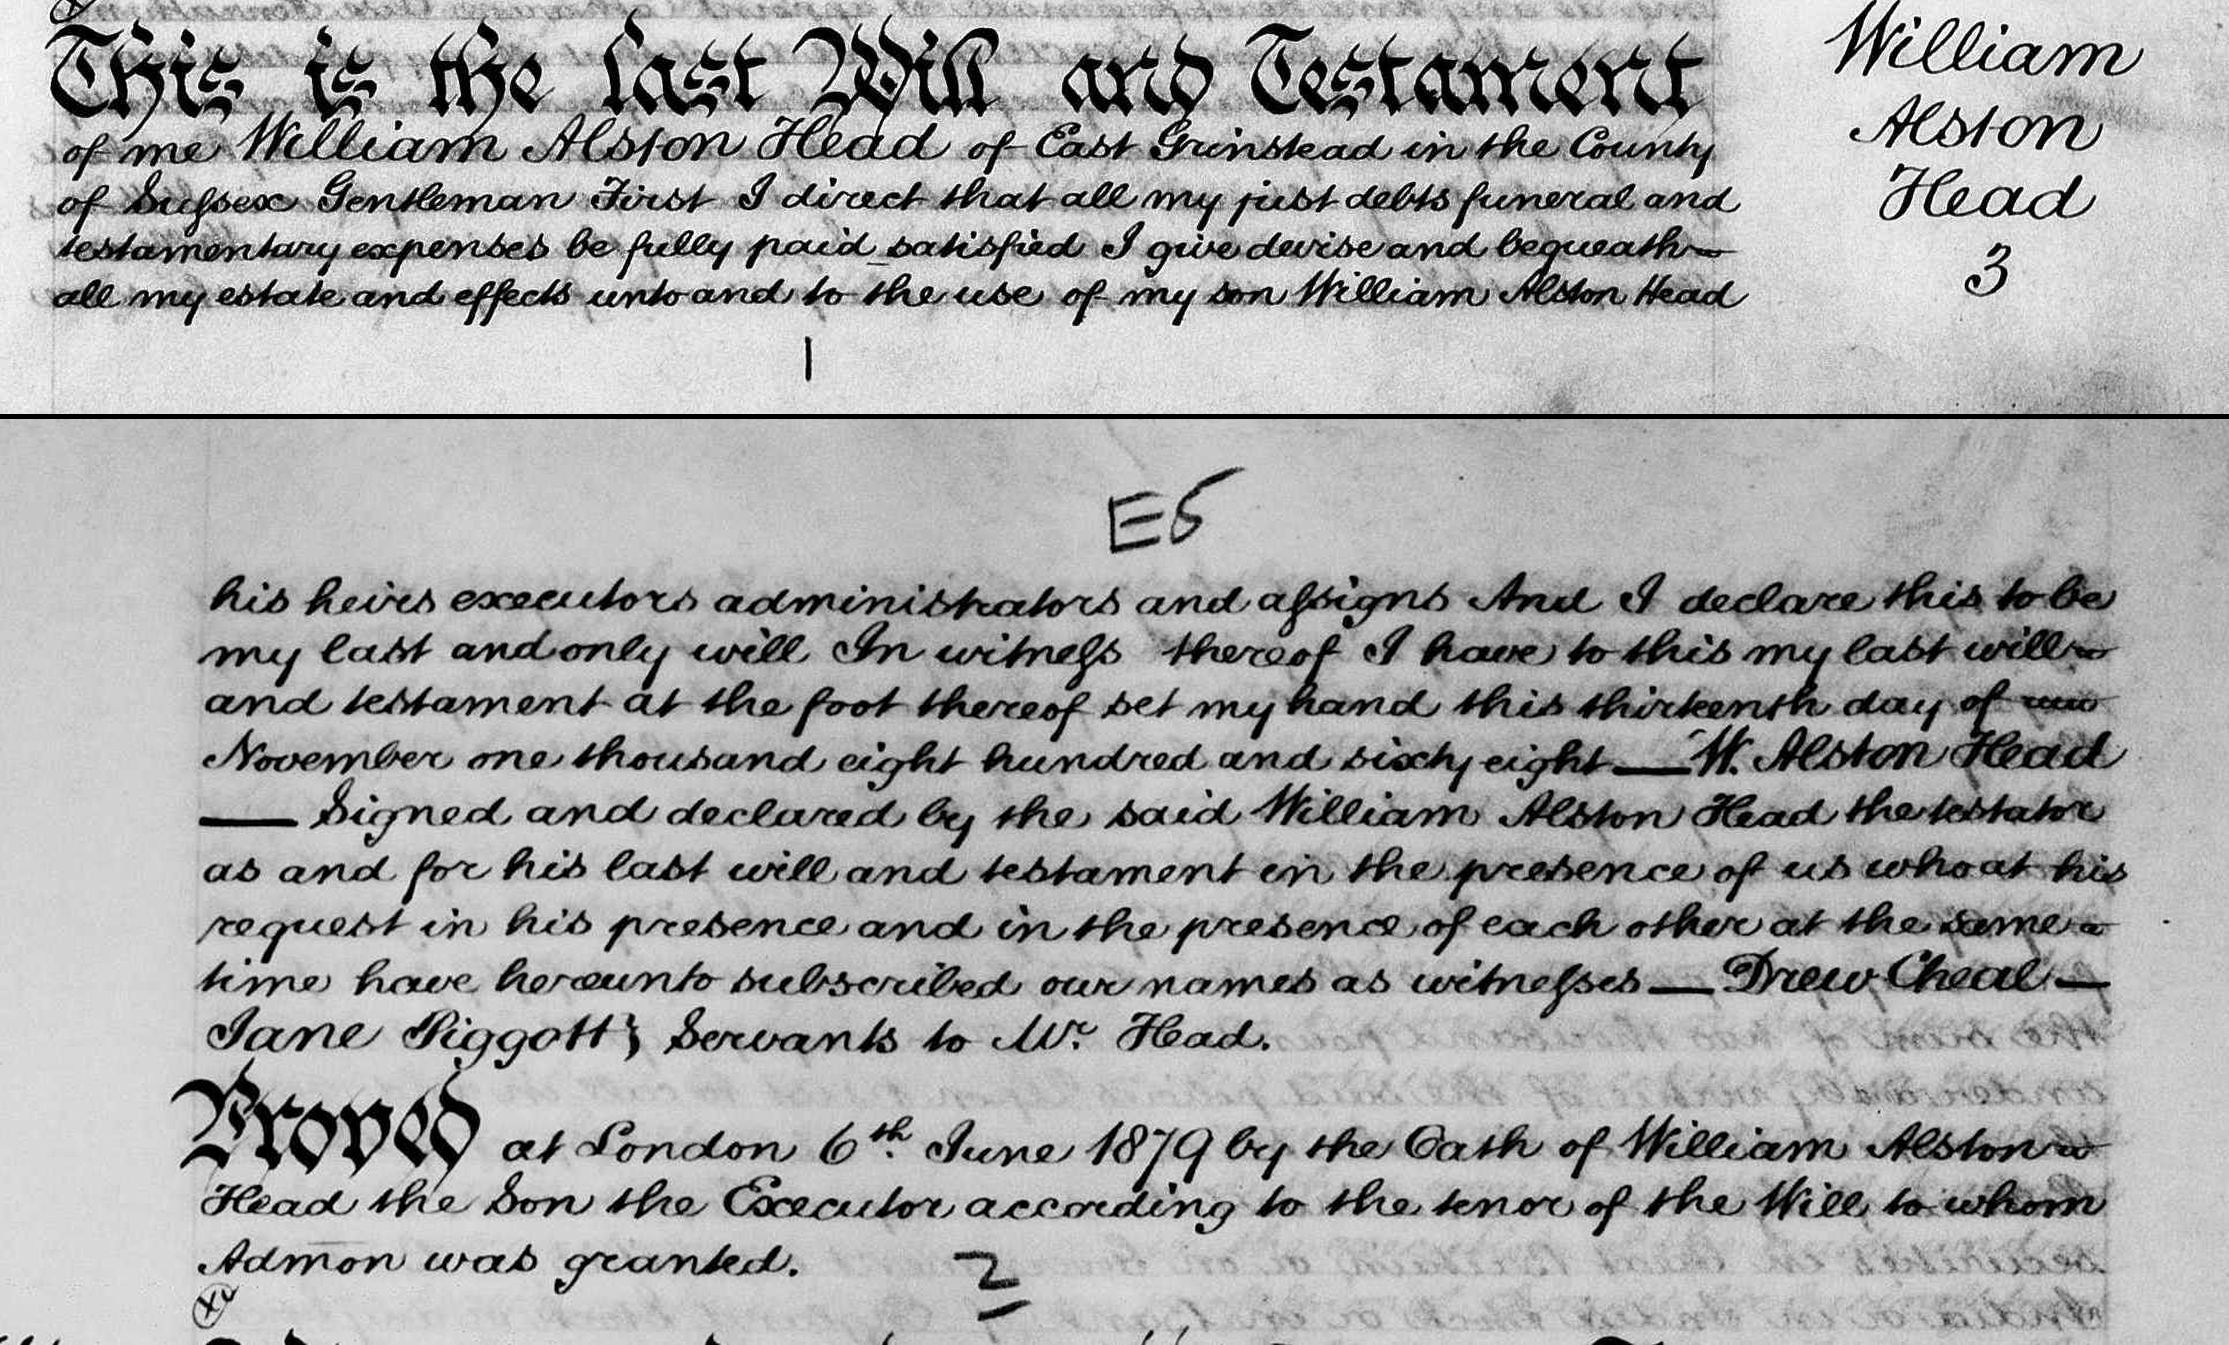 This is the last Will and Testament
of me William Alston Head of East Grinstead in the County
of Sussex Gentleman First I direct that all my just debts funeral and
testamentary expenses be fully paid satisfied I give devise and bequeath
all my estate and effects unto and to the use of my son William Alston Head
William
Alston
Head
3
1
E5
his heirs executors administrators and assigns And I declare this to be
my last and only will In witness thereof I have to this my last will
and testament at the foot thereof set my hand this thirteenth day of
November one thousand eight hundred and sixty eight — W. Alston Head
— Signed and declared by the said William Alston Head the testator
as and for his last will and testament in the presence of us who at his
request in his presence and in the presence of each other at the same
time have hereunto subscribed our names as witnesses — Drew Cheal —
Jane Piggott } Servants to Mr. Head.
Proved at London 6th. June 1879 by the Oath of William Alston
Head the Son the Executor according to the tenor of the Will to whom
Admon was granted.
2